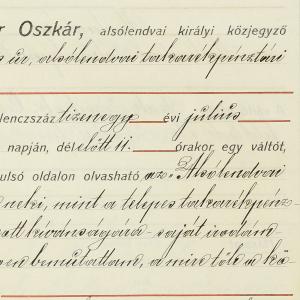 r Oszkár, alsólendvai királyi közjegyző
úr, alsólendvai takarékpénztári
lenczszáz tizenegy évi július
napján, délelőtt 11. órakor egy váltót,
ulsó oldalon olvasható az "Alsólendvai
neki, mint a telepes takarékpénz-
att kívánságára saját irodám-
en bemutattam, a mire tőle a ká-